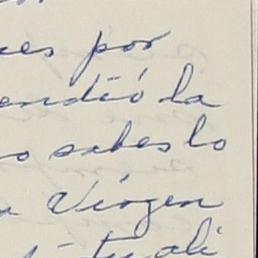 ues por
endió la
o sabes lo
a Virgen